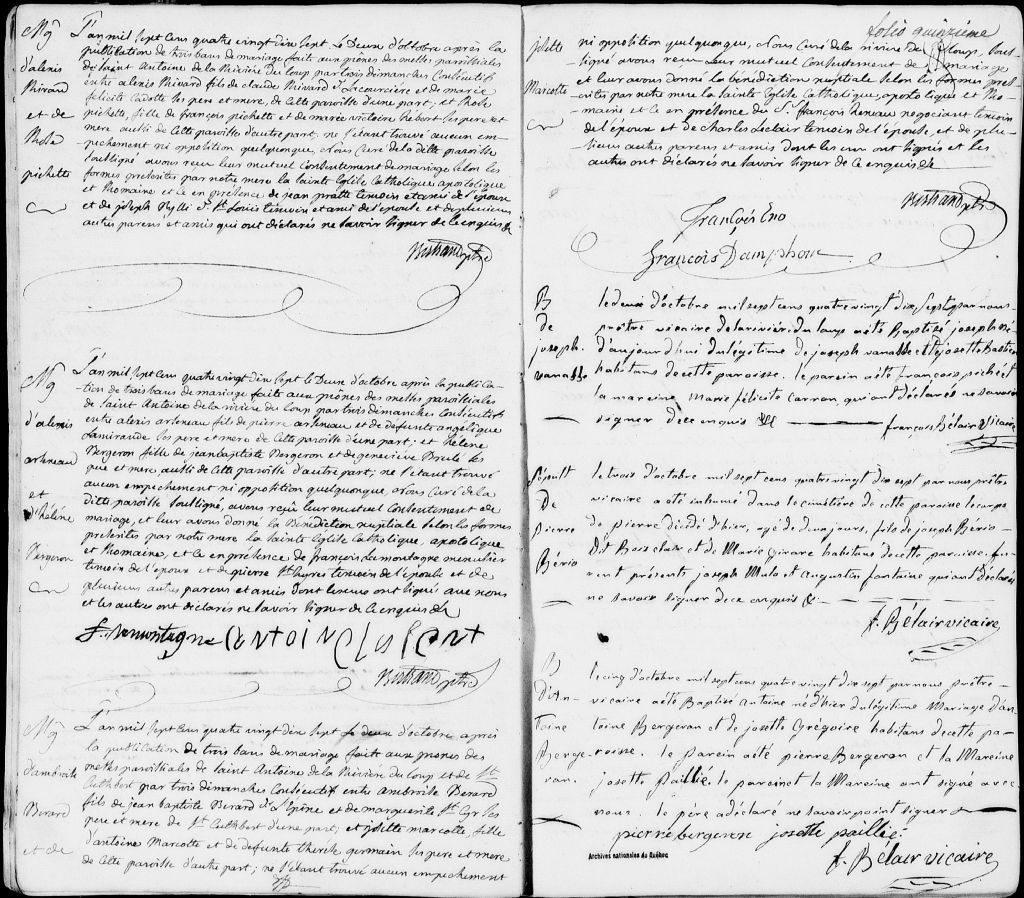 Mg
d'alexis
Rivard
et de
Rose
pichette
L'an mil sept cens quatre vingt dix sept le Deux d'octobre après la
publication de trois bans de mariage fait aux prônes des messes paroissiales
de saint Antoine de la Rivière du loup par trois dimanches Consécutifs
entre alexis Rivard fils de claude Rivard d. Lacoursière et de marie
félicité Cadotte ses pere et mere, de Cette paroisse d'une part, et Rose
pichette, fille de françois pichette et de marie victoire hébert ses pere et
mere aussi de Cette paroisse d'autre part. ne s'étant trouvé aucun em-
pechement ni opposition quelquonque, Nous Curé de la ditte paroisse
soussigné avons reçu leur mutuel Consentement de mariage selon les
formes prescrites par notre mere la sainte Eglise Catholique, apostolique
et Romaine et ce en présence de jean pratte temoin et ami de l'époux
et de joseph d. St Louis temoin et ami de l'épouse et de plusieurs
autres parens et amis qui ont déclarés ne savoir signer de ce enquis &
Bertrand ptre
Mg
d'alexis
arseneau
et
d'hélène
Bergeron
L'an mil sept cens quatre vingt dix sept le Deux d'octobre après la publica-
tion de trois bans de mariage faite aux prônes des messes paroissiales
de saint Antoine de la rivière du loup par trois dimanches Consécutifs
entre alexis arseneau fils de pierre arseneau et de defunte angelique
Lamirande ses pere et mere de Cette paroisse d'une part; et hélène
Bergeron fille de jean baptiste Bergeron et de geneviève Brulé ses
pere et mere aussi de Cette paroisse d'autre part; ne s'étant trouvé
aucun empechement ni opposition quelquonque, Nous Curé de la
ditte paroisse soussigné, avons reçu leur mutuel Consentement de
mariage, et leur avons donné la Bénédiction nuptiale selon les formes
prescrites par notre mere la sainte Eglise Catholique, apostolique
et Romaine, et ce en présence de françois Lamontagne menuisier
temoin de l'époux et de pierre St hyres temoin de l'épouse et de
plusieurs autres parens et amis dont les uns ont signé avec nous
et les autres ont déclarés ne savoir signer de ce enquis &
f. lamontagne antoine
Bertrand ptre
Mg
d'ambroise
Berard
et de
L'an mil sept cens quatre vingt dix sept le deux d'octobre après
la publication de trois bans de mariage faite aux prones des
messes paroissiales de saint Antoine de la Rivière du loup et de St
Cuthbert par trois dimanches Consécutifs entre ambroise Berard
fils de jean baptiste Berard d. l'épine et de marguerite St Cyr ses
pere et mere de St Cuthbert d'une part, et josette marcotte, fille
d'antoine Marcotte et de defunte therese germain ses pere et mere
de Cette paroisse d'autre part; ne s'étant trouvé aucun empechement
folio quinzième
josette
Marcotte
ni opposition quelquonque, Nous Curé de la riviere du loup, sous-
signé avons reçu leur mutuel Consentement de mariage
et leur avons donné la bénédiction nuptiale selon les formes pres-
crites par notre mere la sainte Eglise Catholique, apostolique et Ro-
maine et ce en présence de S. françois henau negociant temoin
de l'époux et de Charles Leclair temoin de l'épouse, et de plu-
sieurs autres parens et amis dont les uns ont signés et les
autres ont déclarés ne savoir signer de ce enquis &
Bertrand ptre
françois Eno
françois Damphouse
B
de
joseph
vanasse
le deux d'octobre mil sept cens quatre vingt dix sept par nous
prêtre vicaire de la rivière du loup a été Baptisé joseph né
d'aujourd'hui du légitime de joseph vanasse et de josette Bastien
habitans de cette paroisse. le parein a été françois piché et
la mareine marie félicité Carron, qui ont déclarés ne savoir
signer de ce enquis &
françois Bélair Vicaire
Sépult
De
Pierre
Bério
le trois d'octobre mil sept cens quatre vingt dix sept par nous prêtre
vicaire a été inhumé dans le cimetière de cette paroisse le corps
de pierre décédé d'hier, agé de deux jours, fils de joseph Bério
dit Boisclair et de Marie Girare habitans de cette paroisse. fu-
rent présents joseph Mula et Augustin fontaine qui ont déclarés
ne savoir signer de ce enquis &
f. Bélair vicaire
B
d'An-
toine
Berge-
ron.
le cinq d'octobre mil sept cens quatre vingt dix sept par nous prêtre
vicaire a été Baptisé Antoine né d'hier du légitime Mariage d'an-
toine Bergeron et de josette Grégoire habitans de cette pa-
roisse. le parein a été pierre Bergeron et la Mareine
josette Paillié. le parein et la Mareine ont signé avec
nous. le père a déclaré ne savoir point signer &
pierre bergeron josette paillée
f. Bélair vicaire
Archives nationales du Québec